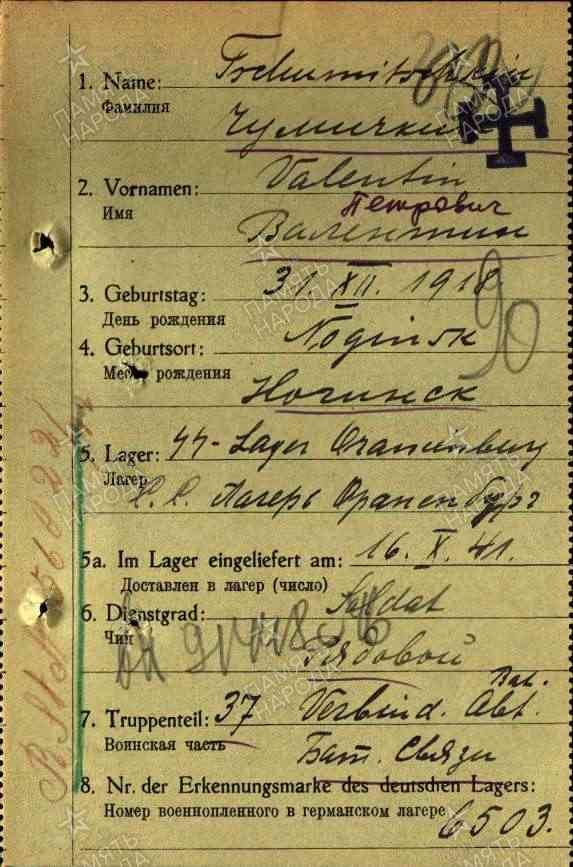 1. Name: Tschumitschkin
Фамилия
Чумичкин
2. Vornamen: Valentin
Имя
Петрович
Валентин
3. Geburtstag: 31. XII. 1918
День рождения
90
4. Geburtsort: Noginsk
Место рождения
Ногинск
5. Lager: SS-Lager Oranienburg
Лагерь
С.С. Лагерь Ораненбург
5a. Im Lager eingeliefert am: 16. X. 41.
Доставлен в лагер (число)
6. Dienstgrad: Soldat
Чин
Рядовой
Bat.
7. Truppenteil: 37 Verbind. Abt.
Воинская часть
Бат. Связи
8. Nr. der Erkennungsmarke des deutschen Lagers:
Номер военнопленного в германском лагере
6503.
ПАМЯТЬ НАРОДА